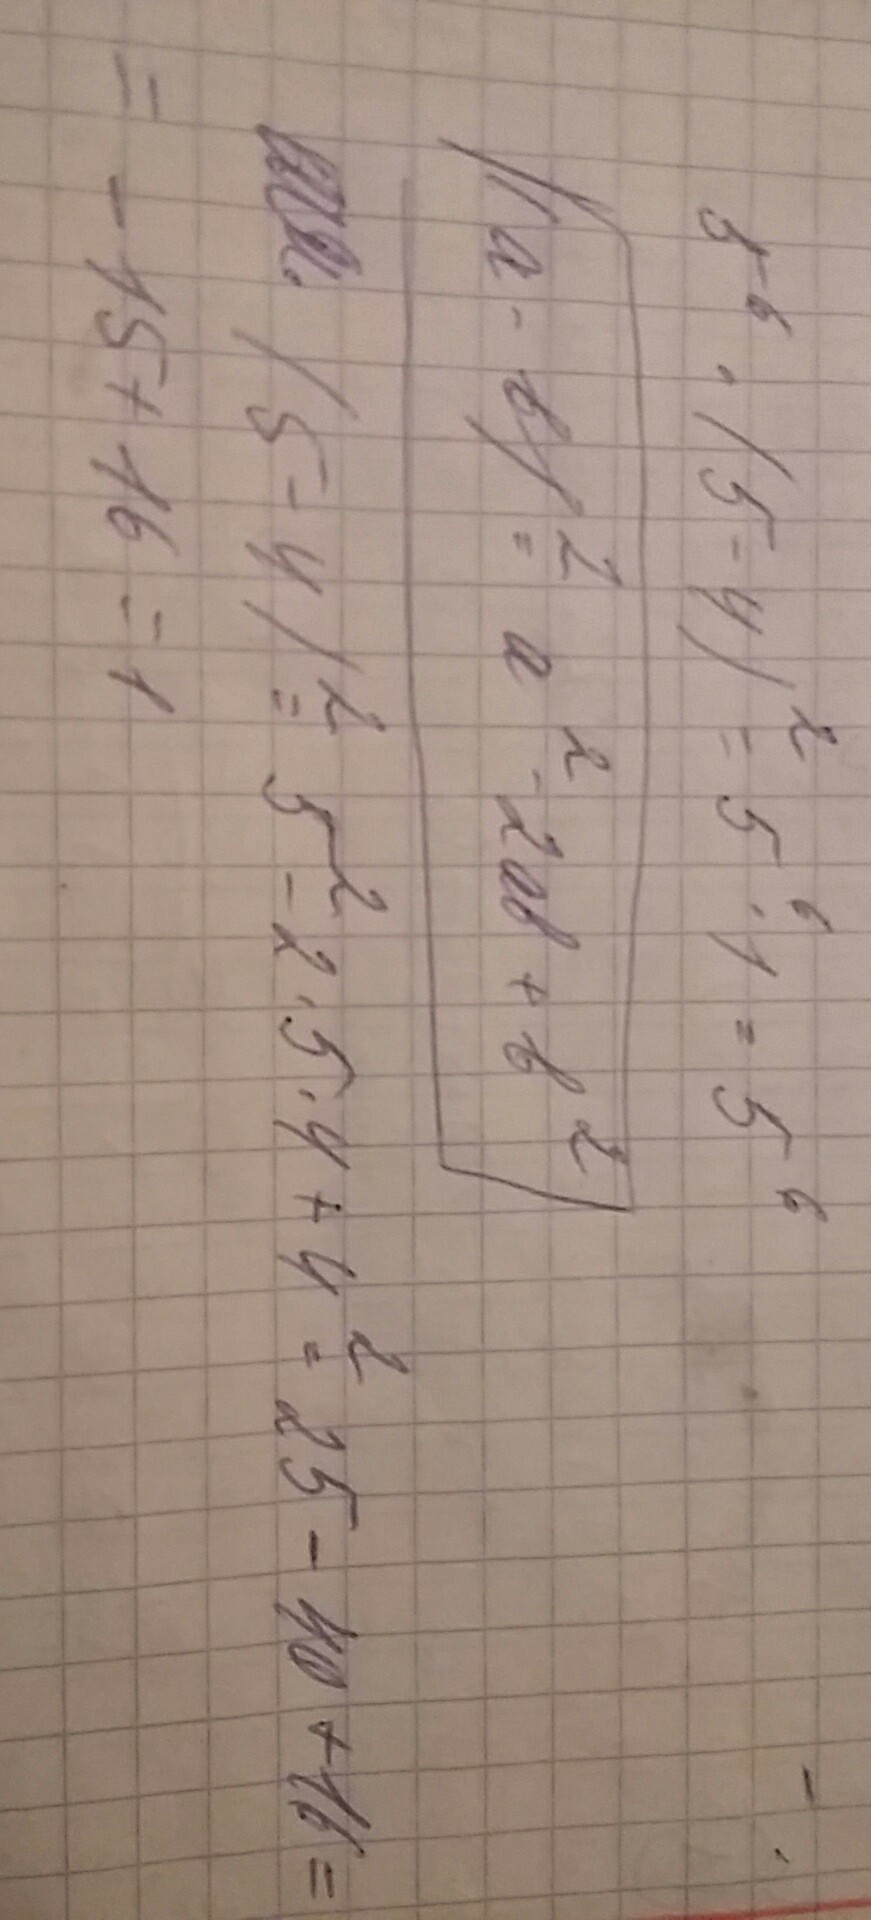 5⁶ · (5 - 4)² = 5⁶ · 1 = 5⁶
(a - b)² = a² - 2ab + b²
(5 - 4)² = 5² - 2 · 5 · 4 + 4² = 25 - 40 + 16 =
= - 15 + 16 = 1